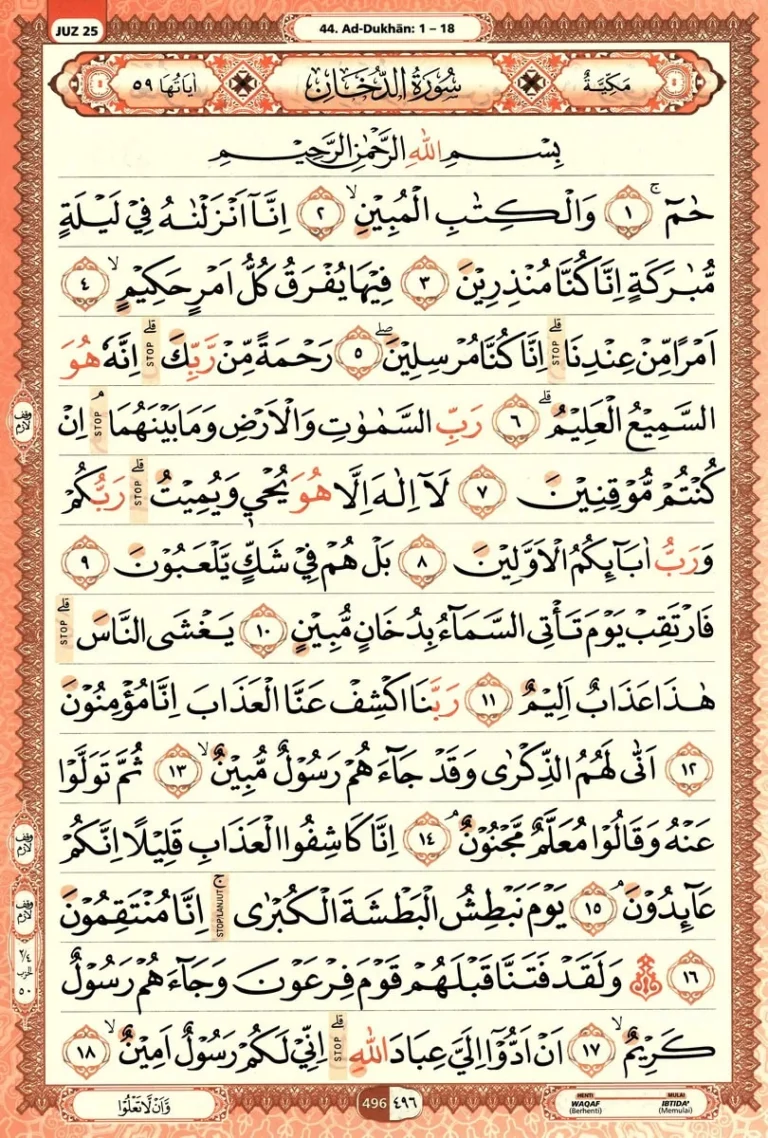 JUZ 25
44. Ad-Dukhān: 1 – 18
مَكِّيَّةٌ
سُوْرَةُ الدُّخَانِ
اٰيَاتُهَا ٥٩
بِسْمِ اللّٰهِ الرَّحْمٰنِ الرَّحِيْمِ
حٰمۤ ۚ ١ وَالْكِتٰبِ الْمُبِيْنِۙ ٢ اِنَّآ اَنْزَلْنٰهُ فِيْ لَيْلَةٍ
مُّبٰرَكَةٍ اِنَّا كُنَّا مُنْذِرِيْنَ ٣ فِيْهَا يُفْرَقُ كُلُّ اَمْرٍ حَكِيْمٍۙ ٤
اَمْرًا مِّنْ عِنْدِنَاۗ STOP اِنَّا كُنَّا مُرْسِلِيْنَۖ ٥ رَحْمَةً مِّنْ رَّبِّكَۗ STOP اِنَّهٗ هُوَ
السَّمِيْعُ الْعَلِيْمُۗ ٦ رَبِّ السَّمٰوٰتِ وَالْاَرْضِ وَمَا بَيْنَهُمَاۘ STOP اِنْ
كُنْتُمْ مُّوْقِنِيْنَ ٧ لَآ اِلٰهَ اِلَّا هُوَ يُحْيٖ وَيُمِيْتُۗ STOP رَبُّكُمْ
وَرَبُّ اٰبَاۤىِٕكُمُ الْاَوَّلِيْنَ ٨ بَلْ هُمْ فِيْ شَكٍّ يَّلْعَبُوْنَ ٩
فَارْتَقِبْ يَوْمَ تَأْتِى السَّمَاۤءُ بِدُخَانٍ مُّبِيْنٍ ١٠ يَغْشَى النَّاسَۗ STOP
هٰذَا عَذَابٌ اَلِيْمٌ ١١ رَبَّنَا اكْشِفْ عَنَّا الْعَذَابَ اِنَّا مُؤْمِنُوْنَ
١٢ اَنّٰى لَهُمُ الذِّكْرٰى وَقَدْ جَاۤءَهُمْ رَسُوْلٌ مُّبِيْنٌۙ ١٣ ثُمَّ تَوَلَّوْا
عَنْهُ وَقَالُوْا مُعَلَّمٌ مَّجْنُوْنٌۘ ١٤ اِنَّا كَاشِفُوا الْعَذَابِ قَلِيْلًا اِنَّكُمْ
عَاۤىِٕدُوْنَۘ ١٥ يَوْمَ نَبْطِشُ الْبَطْشَةَ الْكُبْرٰىۚ STOP/LANJUT اِنَّا مُنْتَقِمُوْنَ
١٦ ۞ وَلَقَدْ فَتَنَّا قَبْلَهُمْ قَوْمَ فِرْعَوْنَ وَجَاۤءَهُمْ رَسُوْلٌ
كَرِيْمٌۙ ١٧ اَنْ اَدُّوْٓا اِلَيَّ عِبَادَ اللّٰهِۗ STOP اِنِّيْ لَكُمْ رَسُوْلٌ اَمِيْنٌۙ ١٨
وقف لازم
وقف لازم
وقف لازم
٢/٤
الحزب
٥٠
وَّاَنْ لَّا تَعْلُوْا
496 ٤٩٦
HENTI
WAQAF
(Berhenti)
MULAI
IBTIDA'
(Memulai)